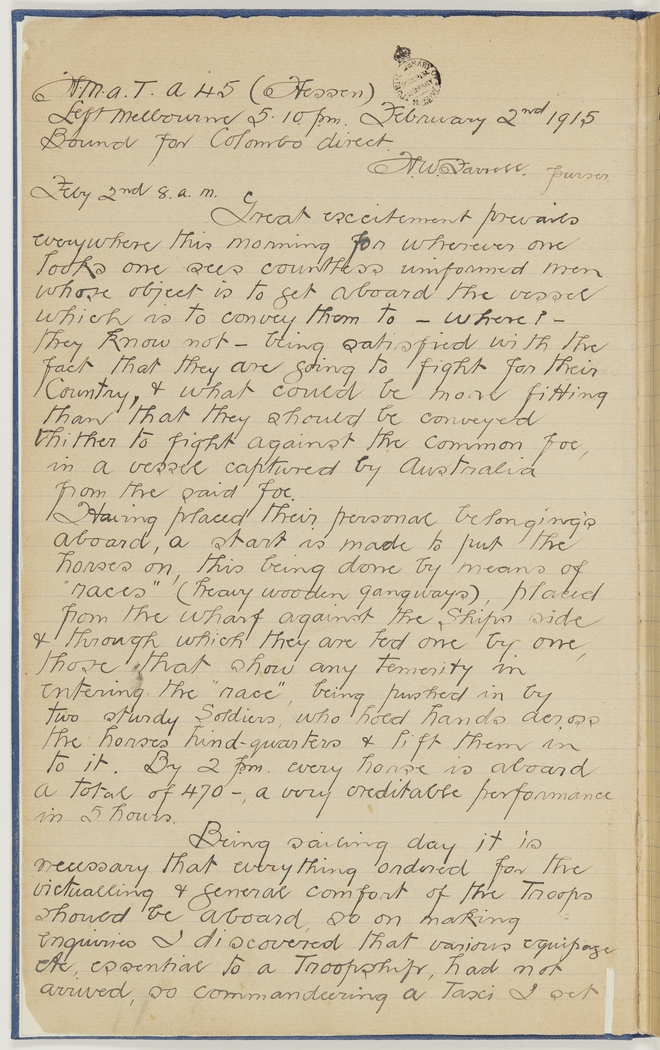 H.M.A.T. A 45 (Hessen)
Left Melbourne 5.10 p.m. February 2nd 1915
Bound for Colombo direct.
H.W. Farrell. purser.
Feby 2nd 8.a.m.
Great excitement prevails
everywhere this morning for wherever one
looks one sees countless uniformed men
whose object is to get aboard the vessel
which is to convey them to - where! -
they know not - being satisfied with the
fact that they are going to fight for their
Country, & what could be more fitting
than that they should be conveyed
thither to fight against the common foe,
in a vessel captured by Australia
from the said foe.
Having placed their personal belonging's
aboard, a start is made to put the
horses on, this being done by means of
"races" (heavy wooden gangways), placed
from the wharf against the Ships side
& through which they are led one by one,
those that show any temerity in
entering the "race", being pushed in by
two sturdy Soldiers, who hold hands across
the horses hind-quarters & lift them in
to it. By 2 p.m. every horse is aboard
a total of 470 -, a very creditable performance
in 5 hours.
Being sailing day it is
necessary that everything ordered for the
victualling & general comfort of the Troops
should be aboard, so on making
enquiries I discovered that various equipage
etc, essential to a Troopship, had not
arrived, so commandeering a Taxi I set